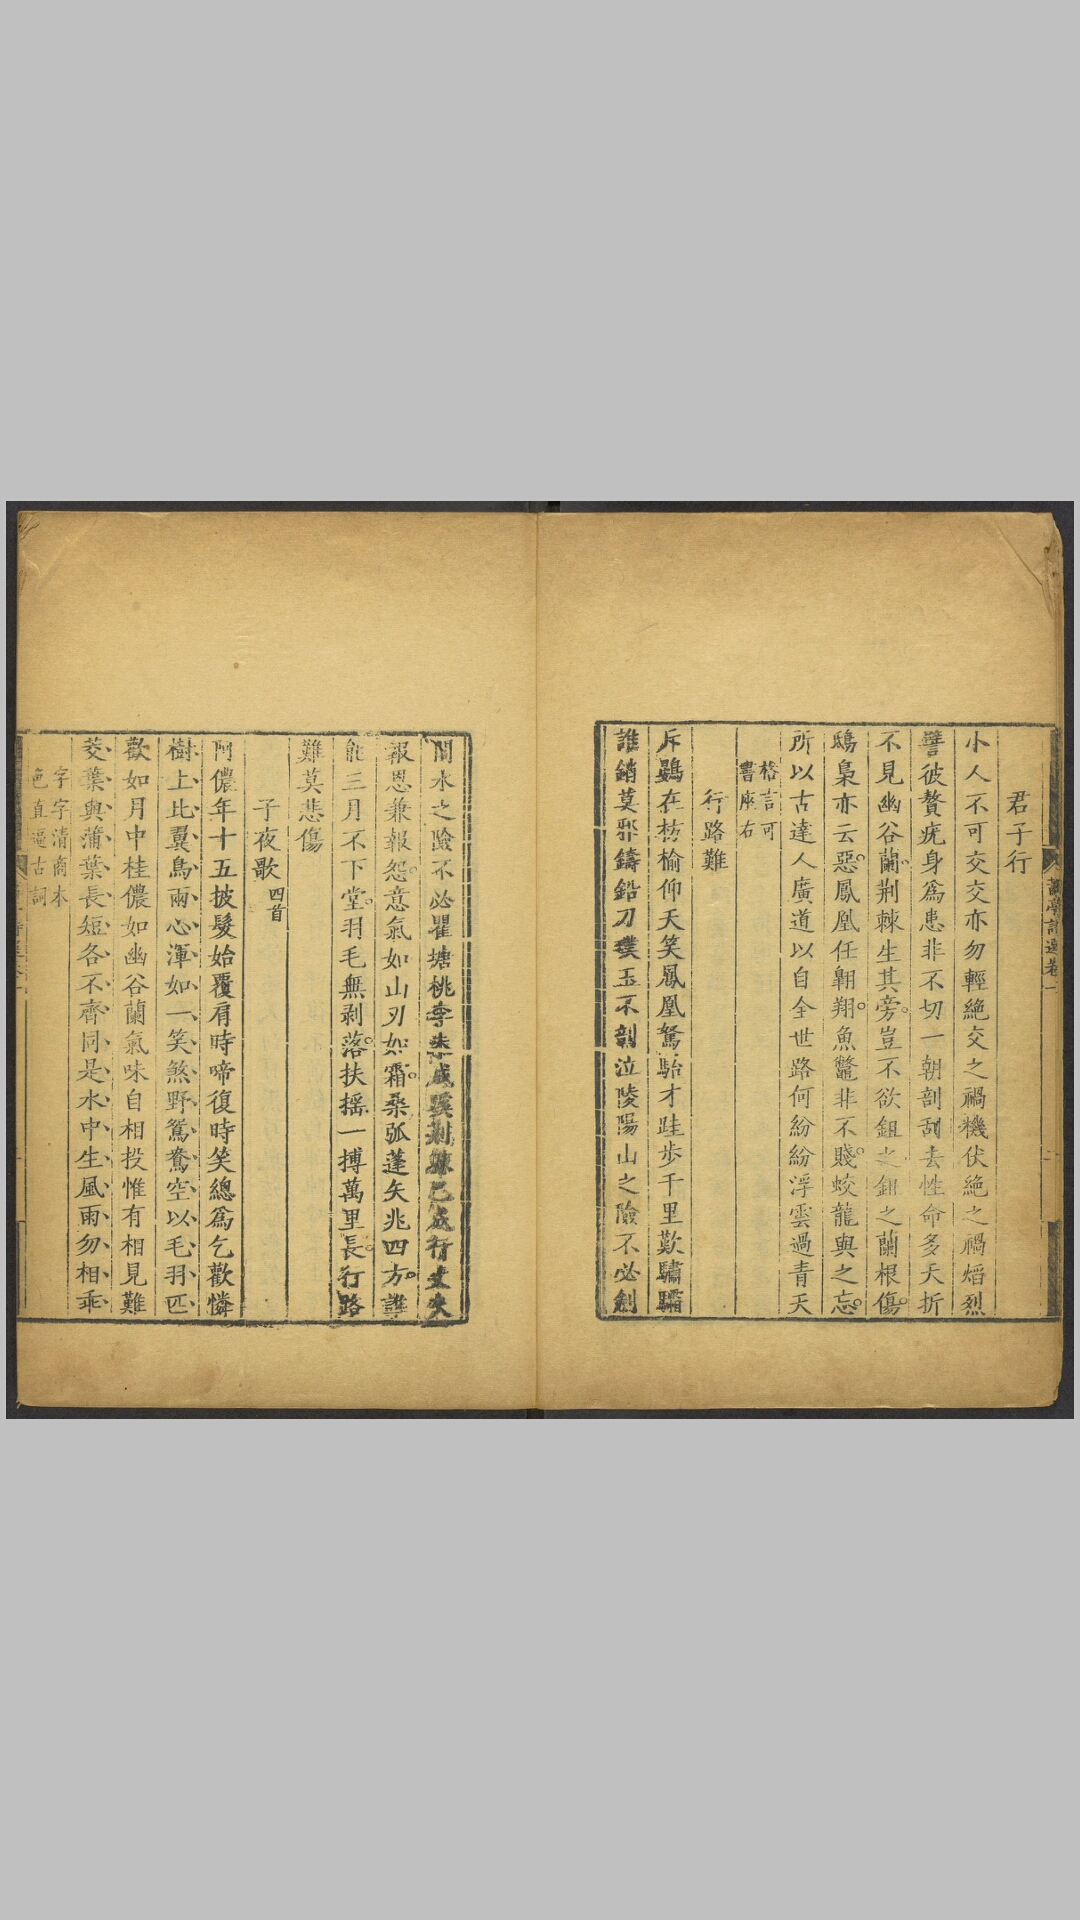 君子行
小人不可交交亦勿輕絶交之禍機伏絶之禍熖烈
譬彼贅疣身爲患非不切一朝剖刮去性命多夭折
不見幽谷蘭荆棘生其旁豈不欲鉏之鉏之蘭根傷
鴟梟亦云惡鳳凰任翺翔魚鼈非不賤蛟龍與之忘
所以古達人廣道以自全世路何紛紛浮雲過青天
格言可
書座右
行路難
斥鷃在枋榆仰天笑鳳凰駑駘才跬步千里歎驌驦
誰銷莫邪鑄鉛刀璞玉不剖泣陵陽山之險不必劍
閣水之險不必瞿塘桃李未成蹊荆棘已成行丈夫
報恩兼報怨意氣如山刃如霜桑弧蓬矢兆四方誰
能三月不下堂羽毛無剥落扶摇一搏萬里長行路
難莫悲傷
子夜歌 四首
阿儂年十五披髮始覆肩時啼復時笑總爲乞歡憐
樹上比翼鳥兩心渾如一笑煞野鴛鴦空以毛羽匹
歡如月中桂儂如幽谷蘭氣味自相投惟有相見難
茭葉與蒲葉長短各不齊同是水中生風雨勿相乖
字字清商本
色直逼古詞